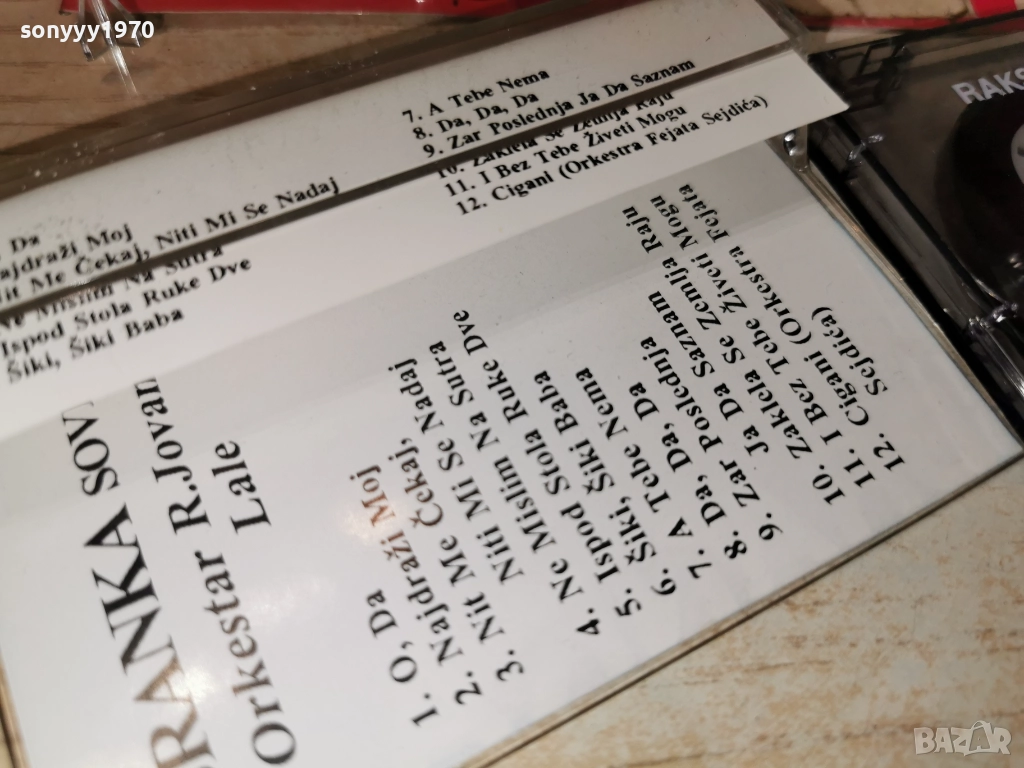 sonyyy1970
RAKS
Da
ajdraži Moj
it Me Čekaj, Niti Mi Se Nadaj
Ne Mislim Na Sutra
Ispod Stola Ruke Dve
Šiki, Šiki Baba
7. A Tebe Nema
8. Da, Da, Da
9. Zar Poslednja Ja Da Saznam
10. Zaklela Se Zemlja Raju
11. I Bez Tebe Živeti Mogu
12. Cigani (Orkestra Fejata Sejdića)
RANKA SOV
Orkestar R.Jovan
Lale
1. O, Da
2. Najdraži Moj
3. Nit Me Čekaj,
Niti Mi Se Nadaj
4. Ne Mislim Na Sutra
5. Ispod Stola Ruke Dve
6. Šiki, Šiki Baba
7. A Tebe Nema
8. Da, Da, Da
9. Zar Poslednja
Ja Da Saznam
10. Zaklela Se Zemlja Raju
11. I Bez Tebe Živeti Mogu
12. Cigani (Orkestra Fejata
Sejdića)
BAZAR